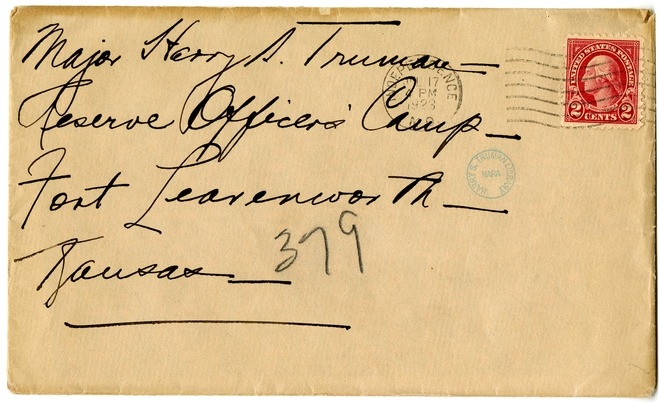 Major Harry S. Truman
Reserve Officers Camp
Fort Leavenworth
Kansas
379
INDEPENDENCE
17
PM
1923
MO.
UNITED STATES POSTAGE
2 CENTS 2
HARRY S. TRUMAN LIBRARY
NARA